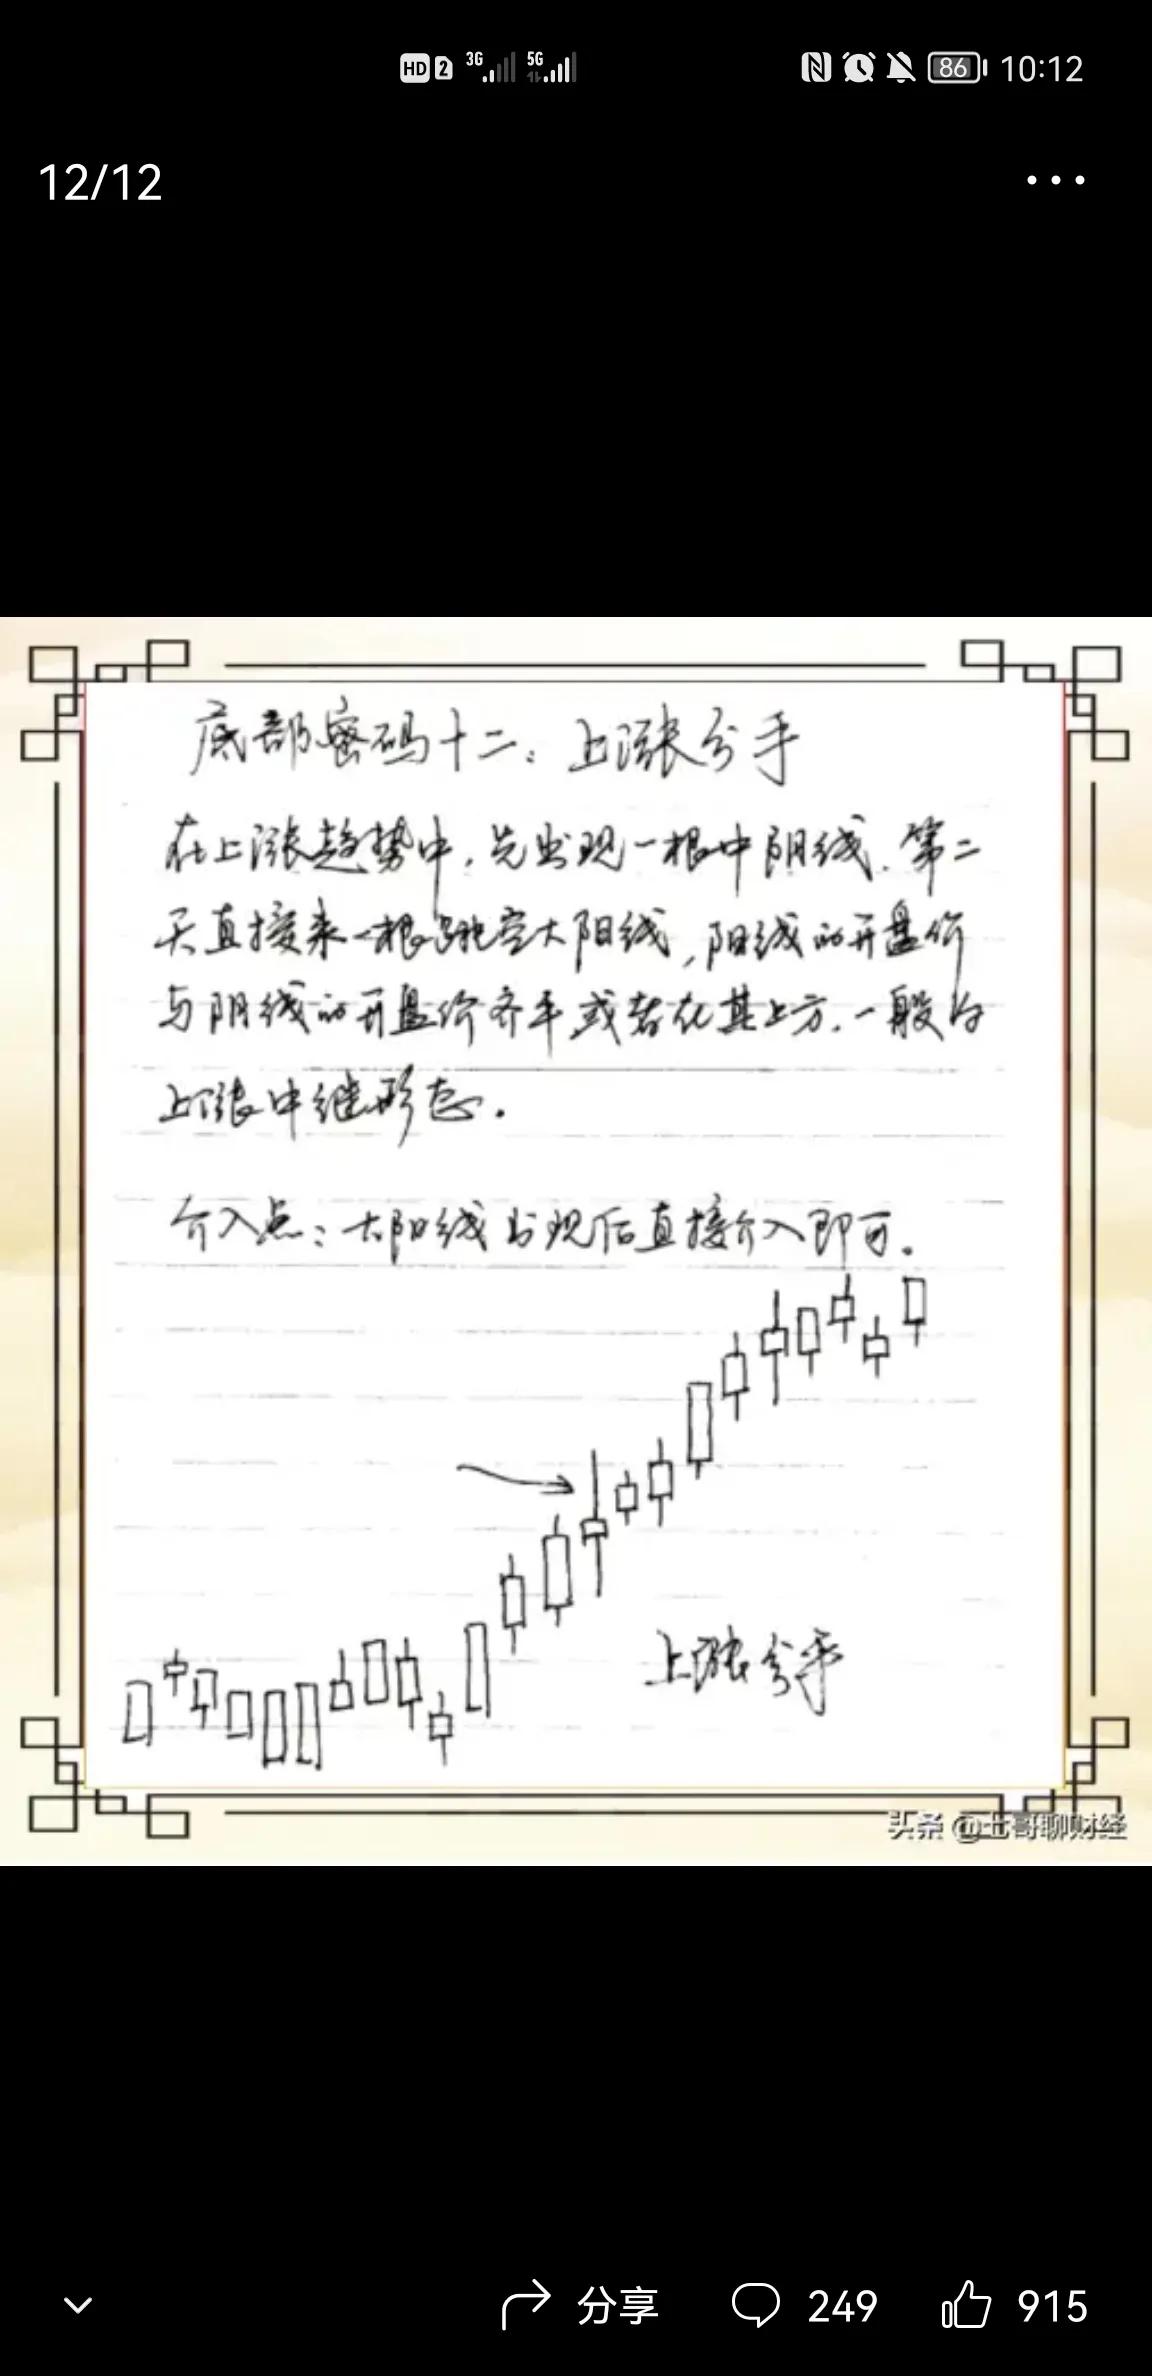 HD 2 3G 5G 86 10:12
12/12
底部密码十二：上涨分手
在上涨趋势中，先出现一根中阴线，第二
天直接来一根跳空大阳线，阳线的开盘价
与阴线的开盘价齐平或者在其上方，一般为
上涨中继形态。
介入点：大阳线出现后直接介入即可。
上涨分手
头条 @七哥聊财经
分享 249 915